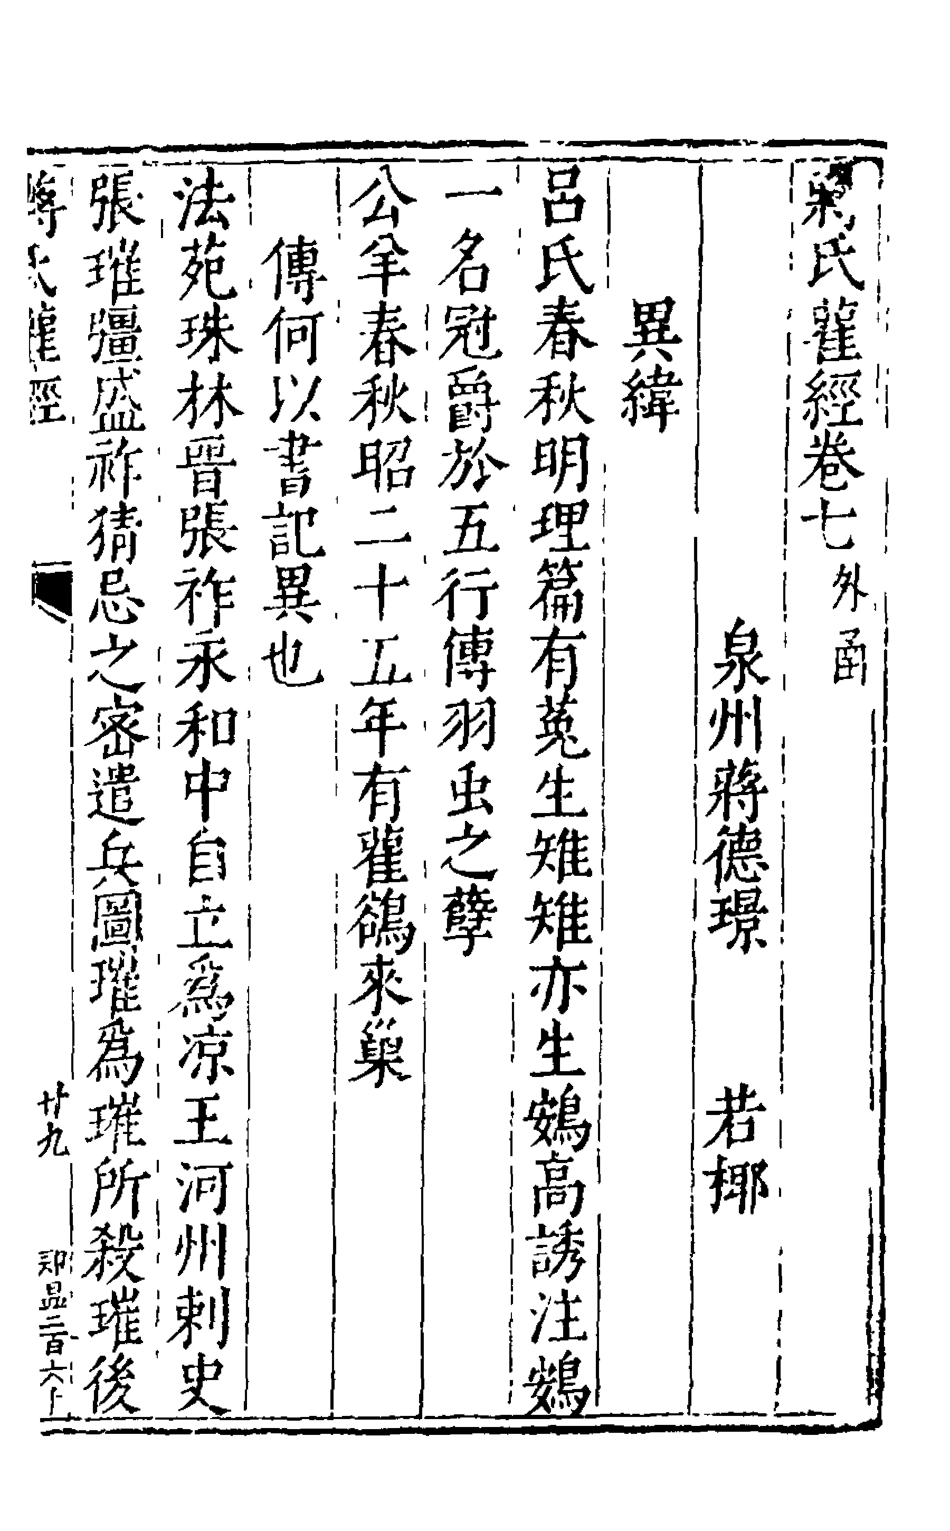 蔣氏雚經卷七 外甬
泉州蔣德璟 若椰
異緯
呂氏春秋明理篇有菟生雉雉亦生鴳高誘注鴳
一名冠爵於五行傳羽虫之孽
公羊春秋昭二十五年有雚鵒來巢
傳何以書記異也
法苑珠林晋張祚永和中自立爲凉王河州刺史
張璀彊盛祚猜忌之密遣兵圖璀爲璀所殺璀後
蔣氏雚經
廿九